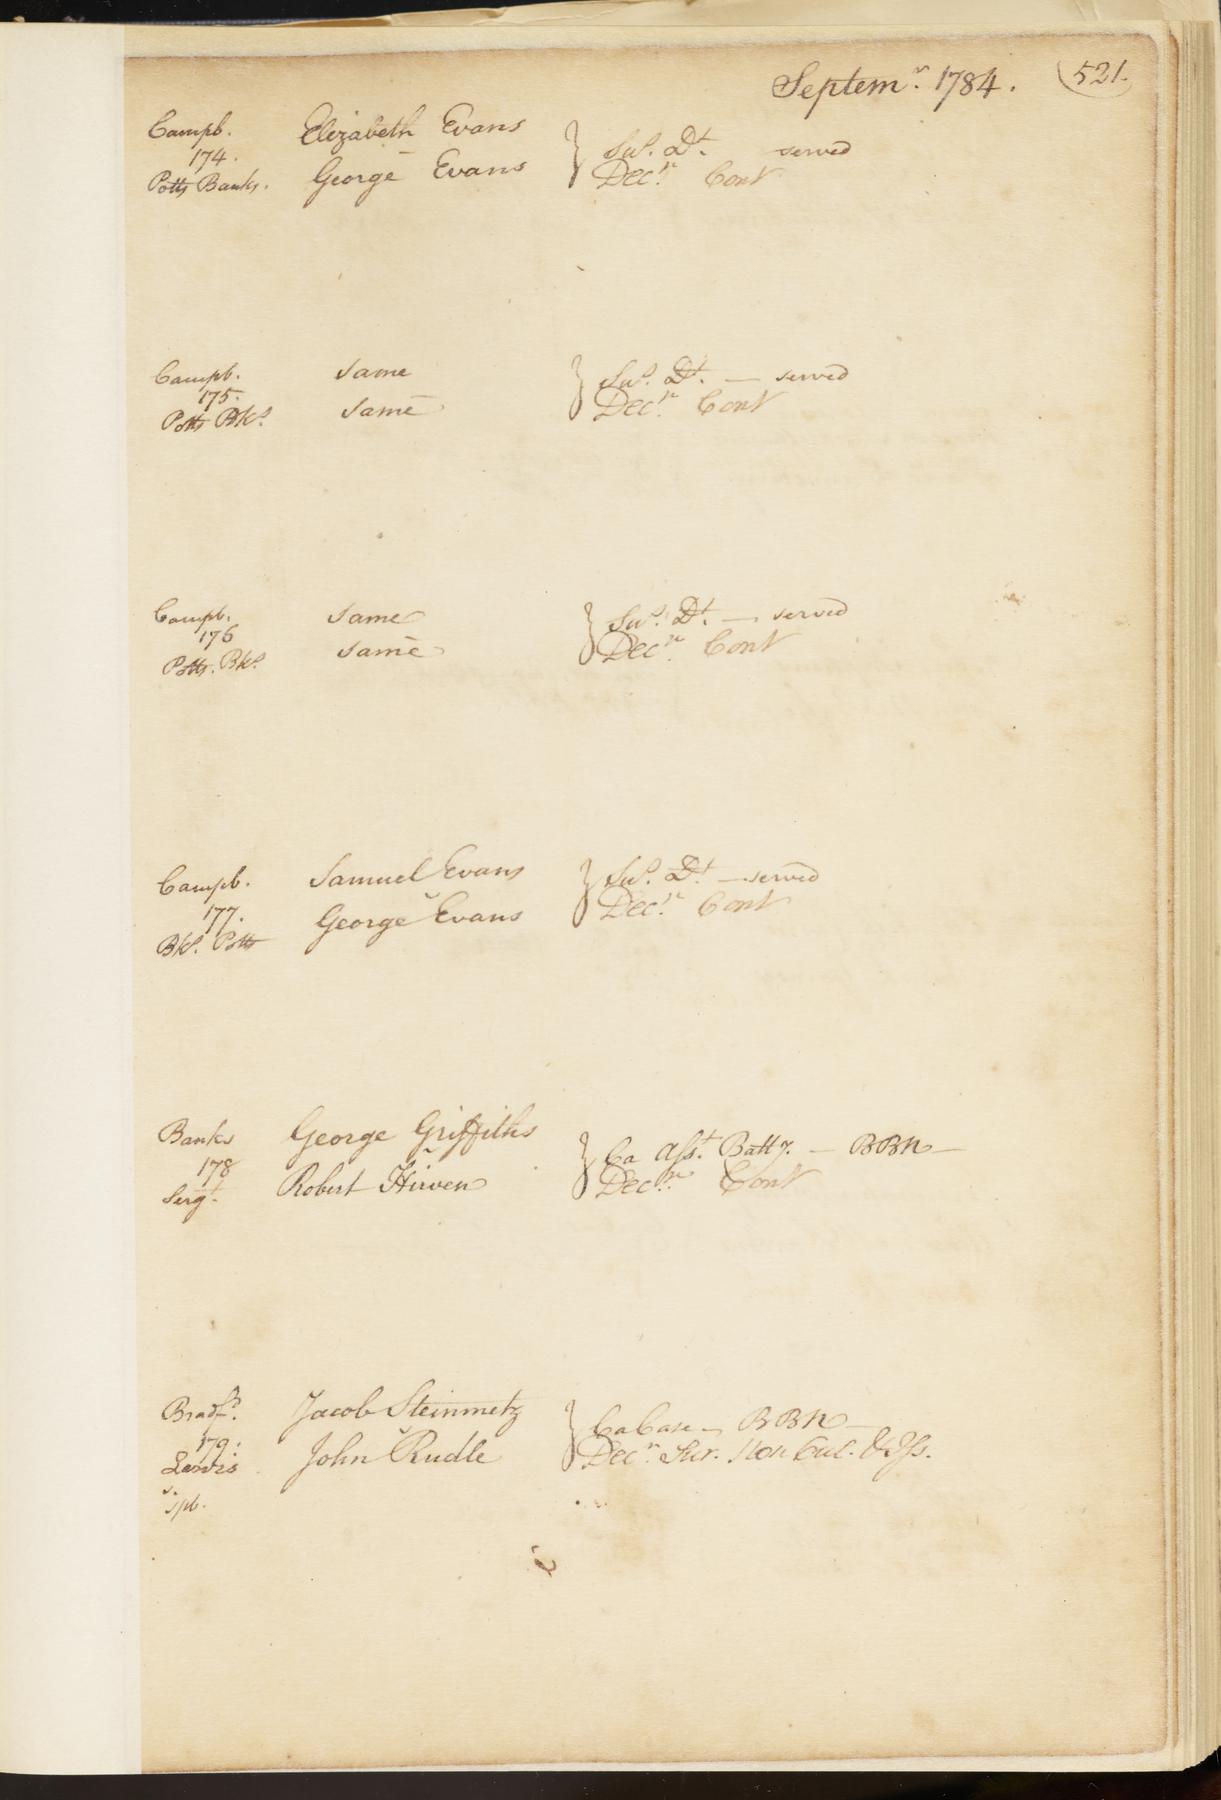 Septemr. 1784. 521.
Campb. Elizabeth Evans Sus. Dt. served
174.
Potts Banks. George Evans Decn. Cont
Campb. same Sus. Dt. — served
175.
Potts Bks. same Decn. Cont
Campb. same Sus. Dt. — served
176
Potts. Bks. same Decn. Cont
Campb. Samuel Evans Sus. Dt. — served
177.
Bks. Potts George Evans Decn. Cont
Banks George Griffiths Ca Asst. Batty. — BBN —
178
Sergt. Robert Hirven Decn. Cont
Bradfd. Jacob Steinmetz Ca Case — BBN —
179:
Lewis John Rudle Decn. Sur. Non Cul. & Iss.